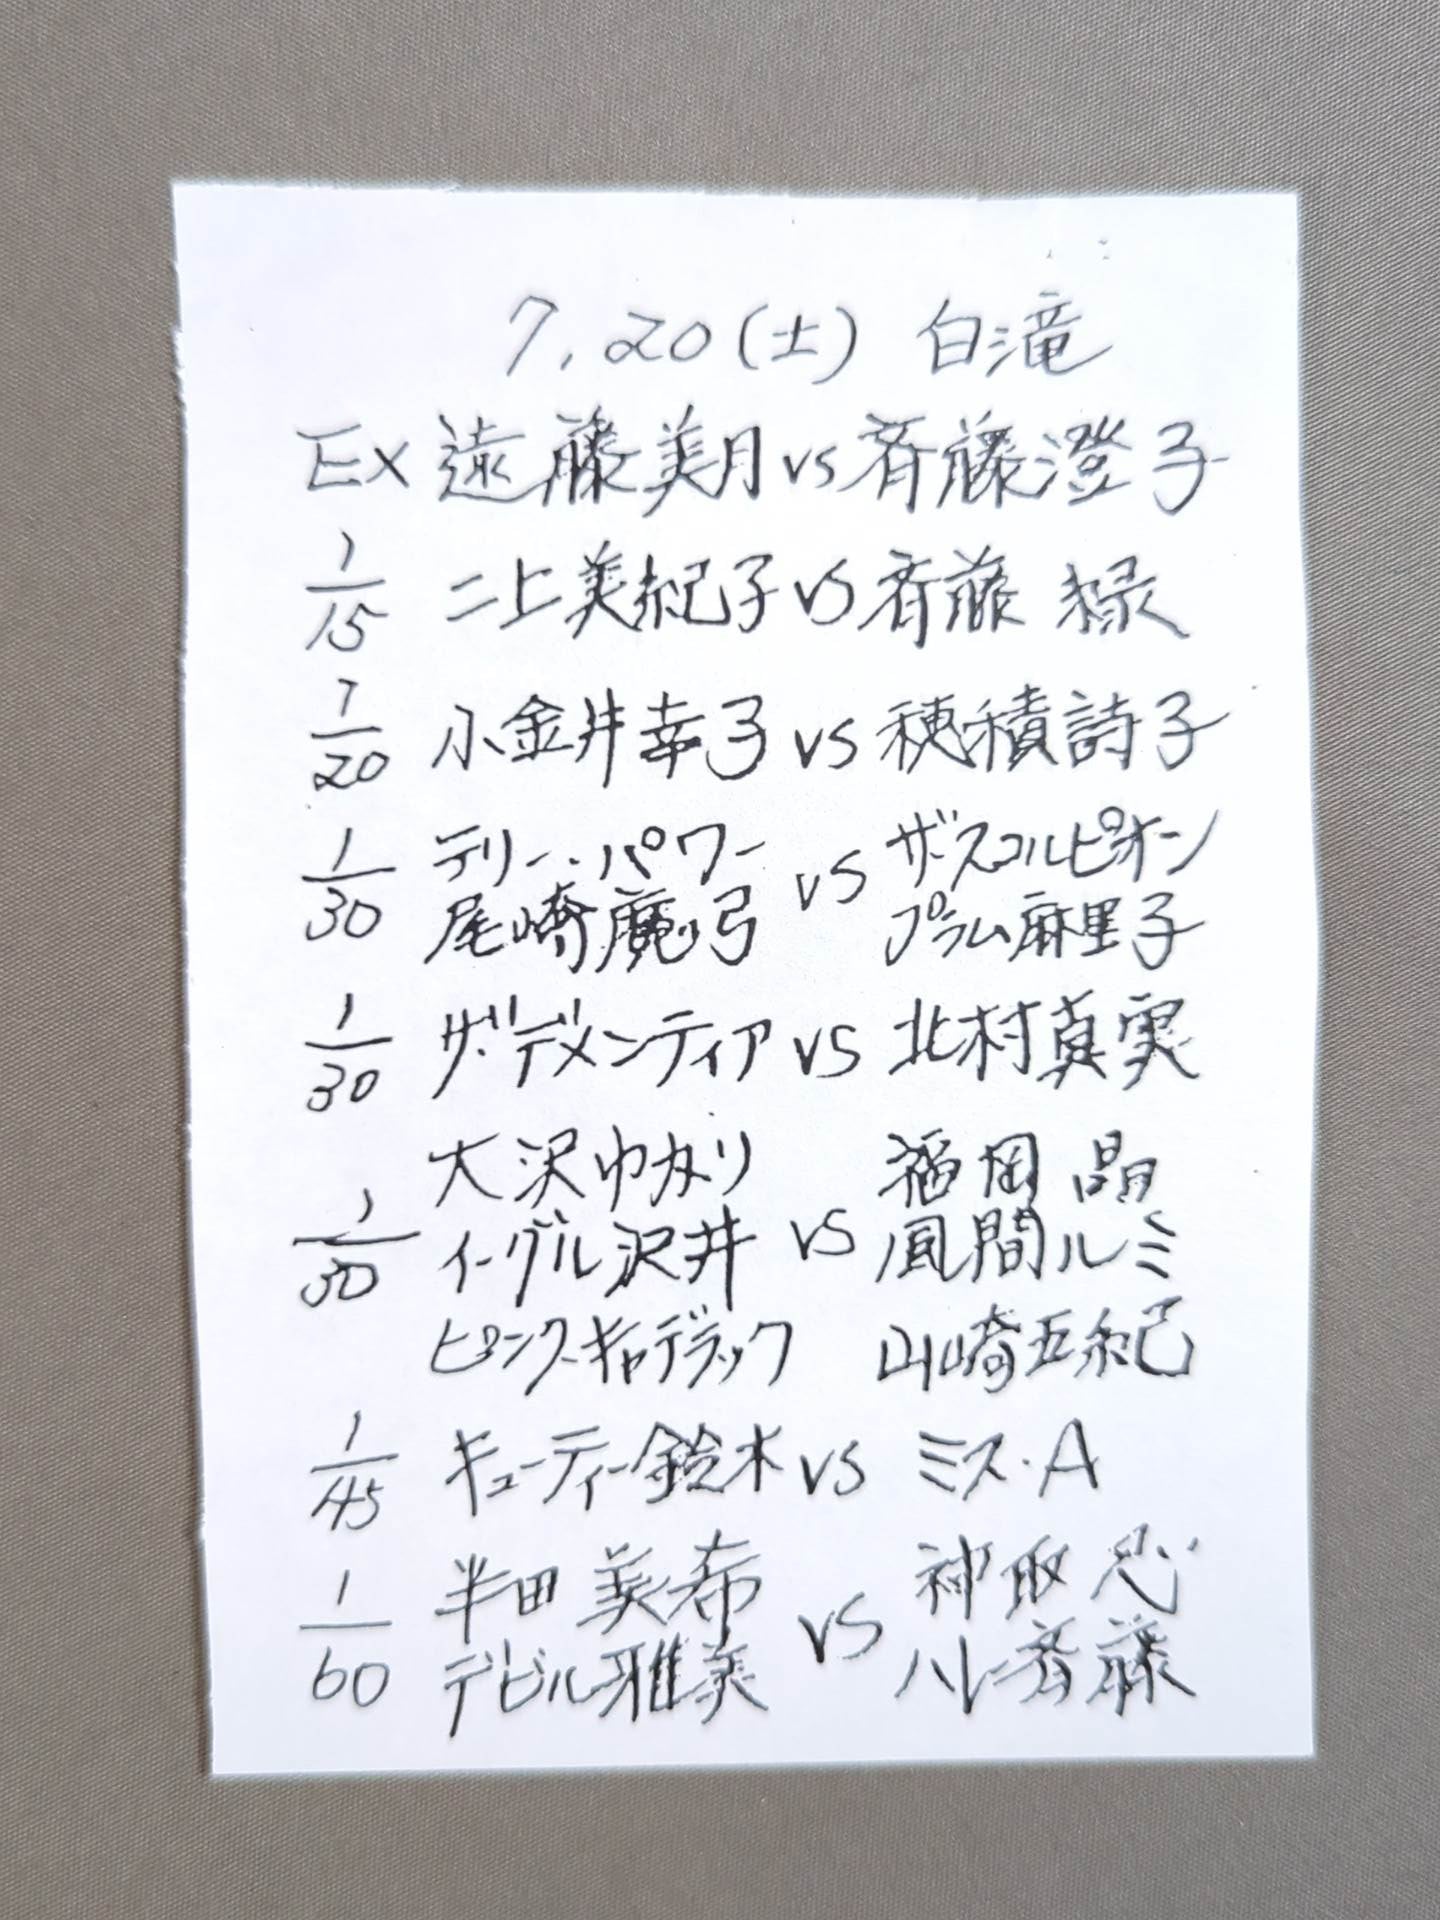 7.20(土) 白滝
EX 遠藤美月 vs 斉藤澄子
1/15 二上美紀子 vs 斉藤 緑
1/20 小金井幸子 vs 穂積詩子
1/30 テリー・パワー vs ザ・スコルピオン
尾崎魔弓 プラム麻里子
1/30 ザ・デメンティア vs 北村真実
大沢ゆかり 福岡 晶
1/30 イーグル沢井 vs 風間ルミ
ピンク・キャデラック 山崎五紀
1/45 キューティー鈴木 vs ミス・A
1/60 半田 美希 vs 神取 忍
デビル雅美 ハレー斉藤